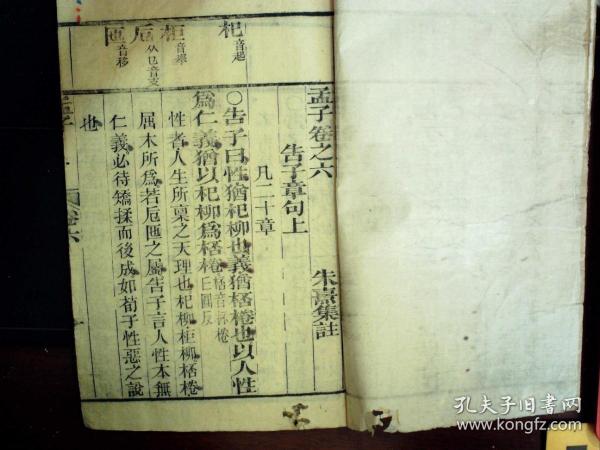 孟子卷之六
告子章句上　朱熹集註
凡二十章
○告子曰性猶杞柳也義猶桮棬也以人性
爲仁義猶以杞柳爲桮棬
性者人生所稟之天理也杞柳柜柳桮棬
屈木所爲若巵匜之屬告子言人性本無
仁義必待矯揉而後成如荀子性惡之說
也
杞音起
柜音舉
巵音支
匜音移
孔夫子旧书网
www.kongfz.com